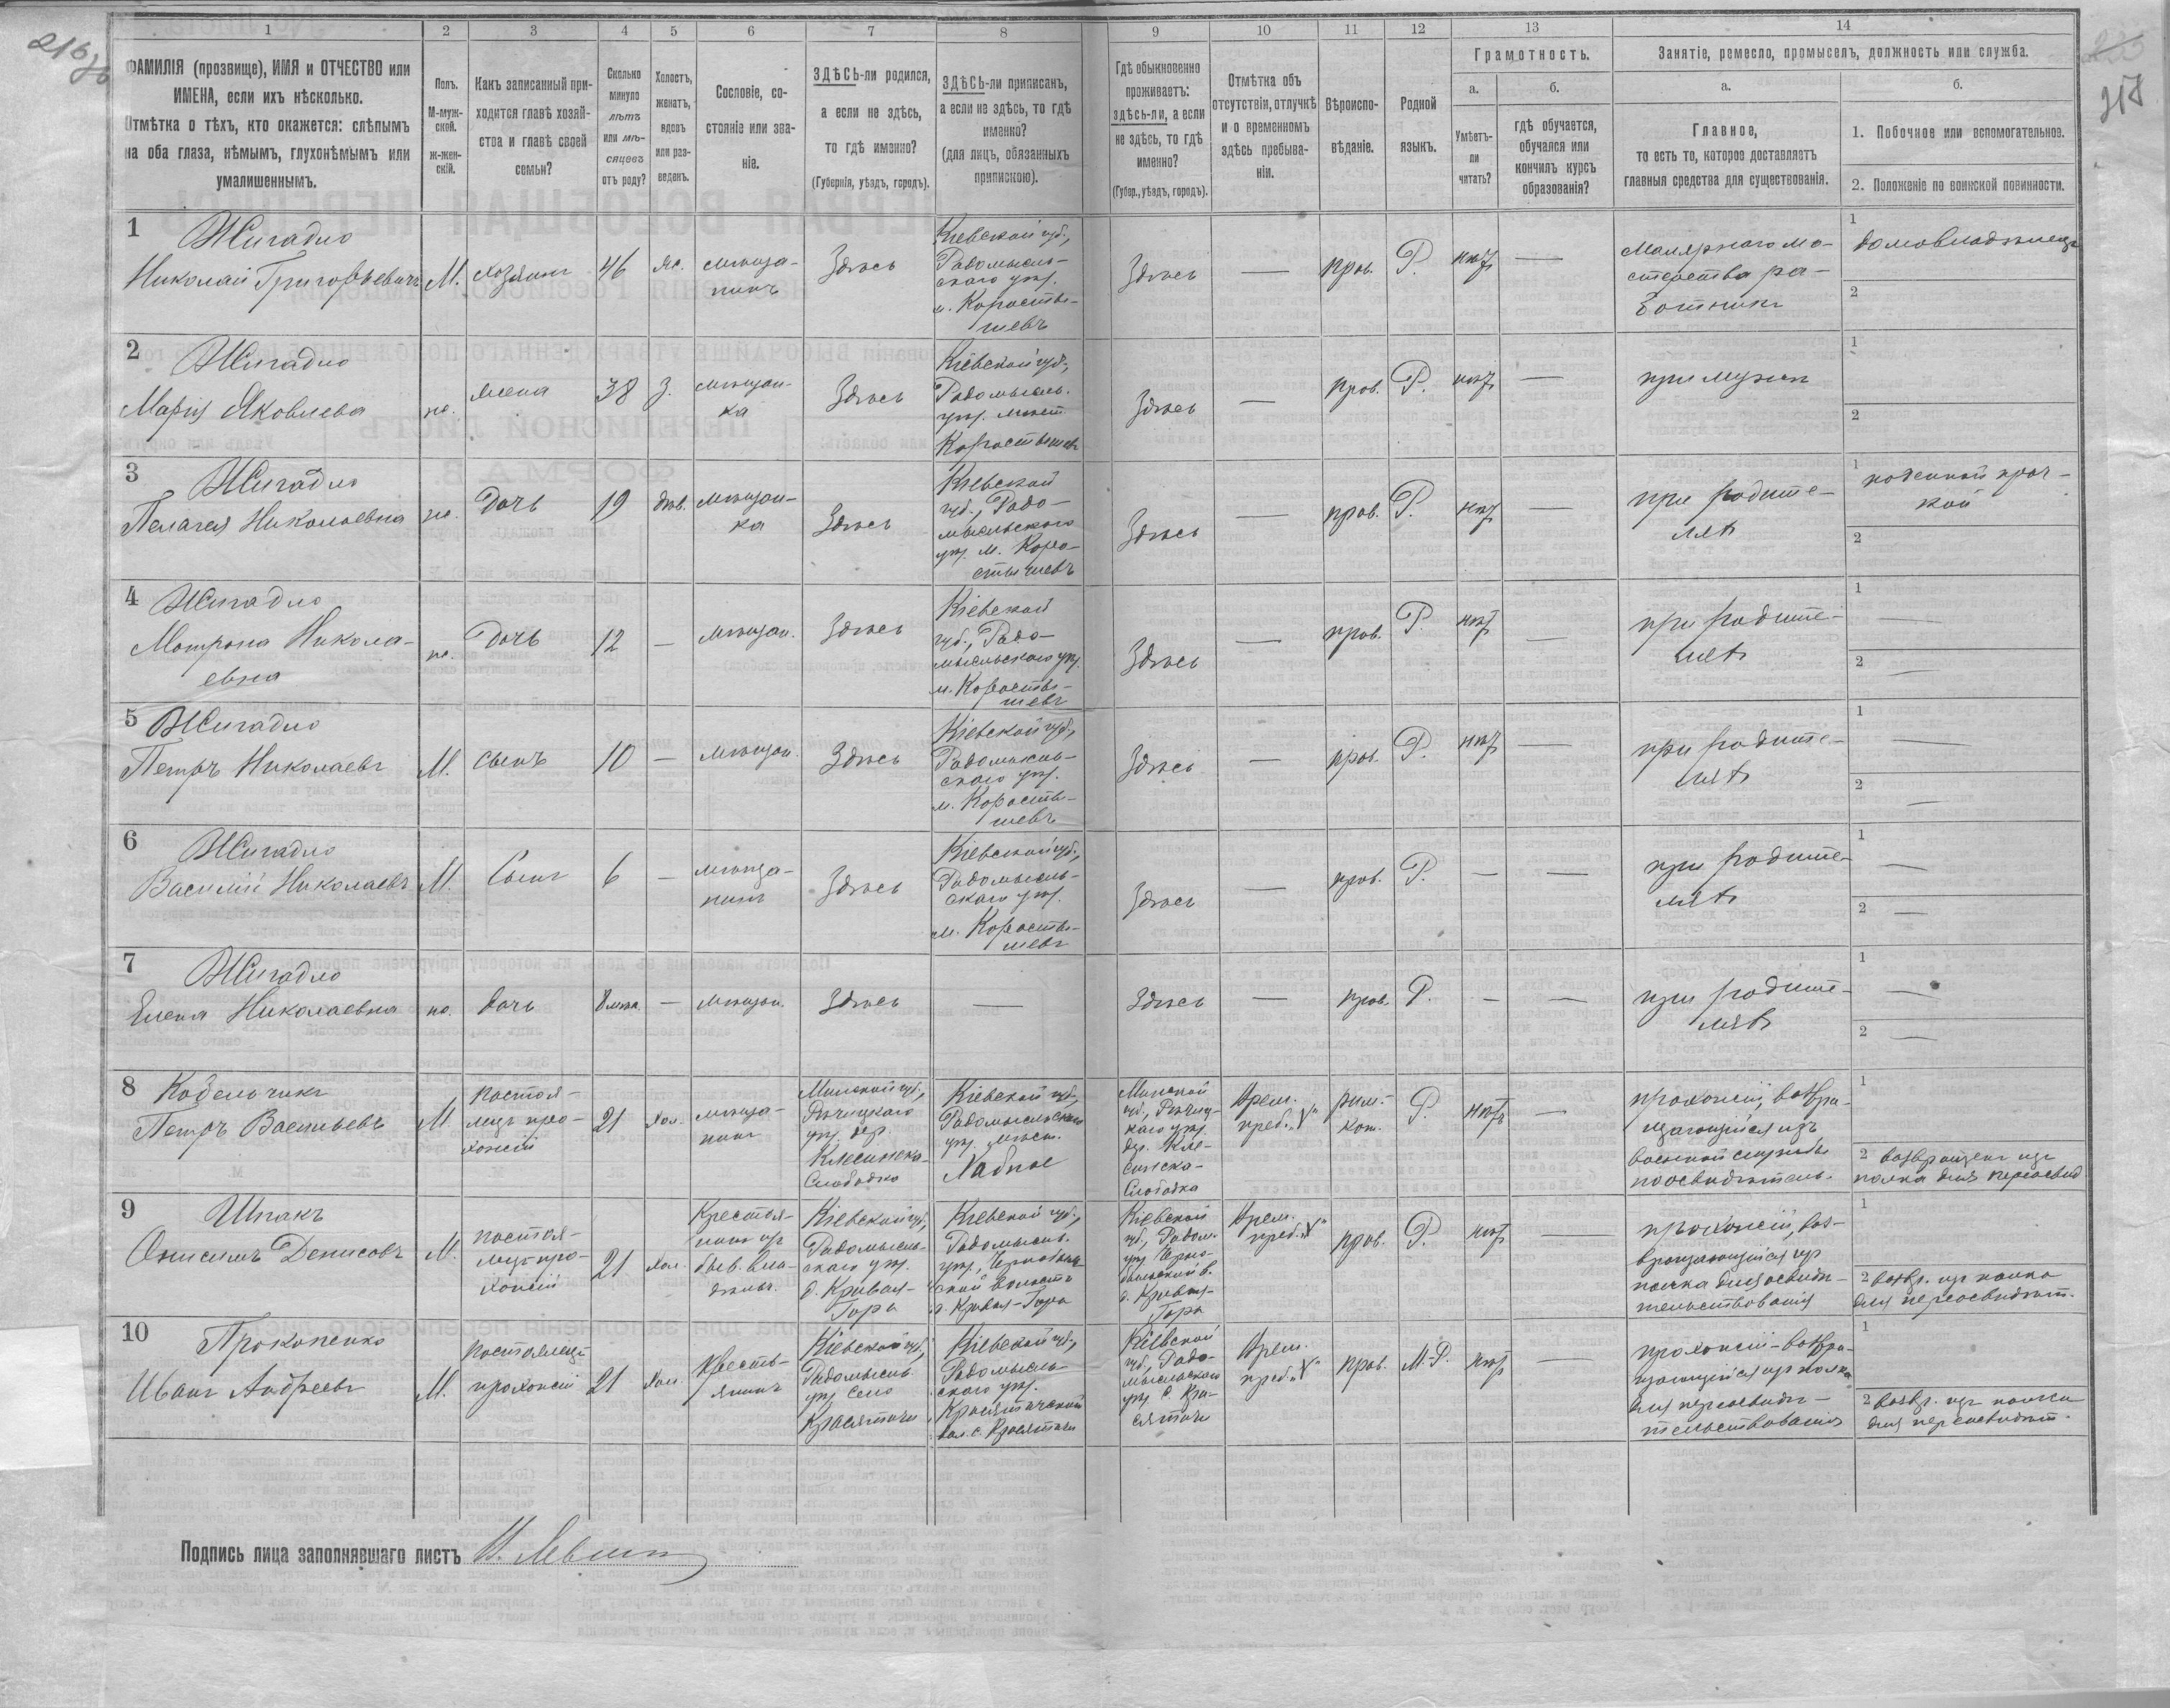 1
2
3
4
5
6
7
8
9
10
11
12
13
14
ФАМИЛІЯ (прозвище), ИМЯ и ОТЧЕСТВО или
ИМЕНА, если ихъ нѣсколько.
Отмѣтка о тѣхъ, кто окажется: слѣпымъ
на оба глаза, нѣмымъ, глухонѣмымъ или
умалишеннымъ.
Полъ.
М-муж-
ской.
ж-жен-
скій.
Какъ записанный при-
ходится главѣ хозяй-
ства и главѣ своей
семьи?
Сколько
минуло
лѣтъ
или мѣ-
сяцевъ
отъ роду?
Холостъ,
женатъ,
вдовъ
или раз-
веденъ.
Сословіе, со-
стояніе или зва-
ніе.
ЗДѢСЬ-ли родился,
а если не здѣсь,
то гдѣ именно?
(Губернія, уѣздъ, городъ).
ЗДѢСЬ-ли приписанъ,
а если не здѣсь, то гдѣ
именно?
(для лицъ, обязанныхъ
припискою).
Гдѣ обыкновенно
проживаетъ:
здѣсь-ли, а если
не здѣсь, то гдѣ
именно?
(Губер., уѣздъ, городъ).
Отмѣтка объ
отсутствіи, отлучкѣ
и о временномъ
здѣсь пребыва-
ніи.
Вѣроиспо-
вѣданіе.
Родной
языкъ.
Грамотность.
а.
Умѣетъ-
ли
читать?
б.
гдѣ обучается,
обучался или
кончилъ курсъ
образованія?
Занятіе, ремесло, промыселъ, должность или служба.
а.
Главное,
то есть то, которое доставляетъ
главныя средства для существованія.
б.
1. Побочное или вспомогательное.
2. Положеніе по воинской повинности.
1 Жигадло
Николай Григорьевичъ
М.
хозяинъ
46
жс.
мѣща-
нинъ
Здѣсь
Кіевской губ.,
Радомысль-
скаго уѣз.
м. Коросты-
шевъ
Здѣсь
—
прав.
Р.
нѣтъ
—
Малярнаго ма-
стерства ра-
ботникъ
1 домовладѣлецъ
2
2 Жигадло
Марія Яковлева
ж.
жена
38
З.
мѣщан-
ка
Здѣсь
Кіевской губ.,
Радомысль.
уѣз. мѣст.
Коростышевъ
Здѣсь
—
прав.
Р.
нѣтъ
—
при мужѣ
1
2
3 Жигадло
Пелагея Николаевна
ж.
Дочь
19
дѣв.
мѣщан-
ка
Здѣсь
Кіевской
губ., Радо-
мысльскаго
уѣз. м. Коро-
стышевъ
Здѣсь
—
прав.
Р.
нѣтъ
—
при родите-
ляхъ
1 поденной прач-
кой
2
4 Жигадло
Матрона Никола-
евна
ж.
Дочь
12
—
мѣщан.
Здѣсь
Кіевской
губ., Радо-
мысльскаго уѣз.
м. Коросты-
шевъ
Здѣсь
—
прав.
Р.
нѣтъ
—
при родите-
ляхъ
1 —
2 —
5 Жигадло
Петръ Николаевъ
М.
сынъ
10
—
мѣщан.
Здѣсь
Кіевской губ.,
Радомысль-
скаго уѣз.
м. Коросты-
шевъ
Здѣсь
—
прав.
Р.
нѣтъ
—
при родите-
ляхъ
1 —
2 —
6 Жигадло
Василій Николаевъ
М.
Сынъ
6
—
мѣща-
нинъ
Здѣсь
Кіевской губ.,
Радомысль-
скаго уѣз.
м. Коросты-
шевъ
Здѣсь
—
прав.
Р.
—
—
при родите-
ляхъ
1 —
2 —
7 Жигадло
Елена Николаевна
ж.
дочь
8 мѣс.
—
мѣщан.
Здѣсь
—
Здѣсь
—
прав.
Р.
—
—
при родите-
ляхъ
1 —
2 —
8
Петръ Васильевъ
М.
постоя-
лецъ про-
хожій
21
хол.
мѣща-
нинъ
Минской губ.,
Рѣчицкаго
уѣз. дер.
Слободка
Кіевской губ.,
Радомысльскаго
уѣз. мѣст.
Хабное
Минской
губ., Рѣчиц-
каго уѣз.
Слободка
Врем.
преб. „V“
рим.-
кат.
Р.
нѣтъ
—
прохожій, возвра-
щающійся изъ
военной службы
1
2 возвращенъ изъ
полка для переосвид.
9 Шпакъ
Онисимъ Денисовъ
М.
постоя-
лецъ про-
хожій
21
хол.
Крестья-
нинъ из
быв. вла-
дѣльч.
Кіевской губ.,
Радомысль-
скаго уѣз.
д. Кривая-
Гора
Кіевской губ.,
Радомысль.
уѣз., Чернобыль-
ской волости
д. Кривая-Гора
Кіевской
губ., Радом.
уѣз. Черно-
быльской в.
д. Кривая-
Гора
Врем.
преб. „V“
прав.
Р.
нѣтъ
—
прохожій, воз-
вращающійся изъ
полка для освидѣ-
тельствованія
1
2 возвр. изъ полка
для переосвидѣт.
10 Прокопенко
Иванъ Андреевъ
М.
постоялецъ
прохожій
21
хол.
Кресть-
янинъ
Кіевской губ.,
Радомысль.
уѣз. село
Красятичи
Кіевской губ.,
Радомысль-
скаго уѣз.
Красятичской
вол. с. Красятичи
Кіевской
губ., Радо-
мысльскаго
уѣз. с. Кра-
сятичи
Врем.
преб. „V“
прав.
М.-Р.
нѣтъ
—
прохожій - возвра-
щающійся изъ полка
для переосвидѣ-
тельствованія
1
2 возвр. изъ полка
для переосвидѣт.
Подпись лица заполнявшаго листъ